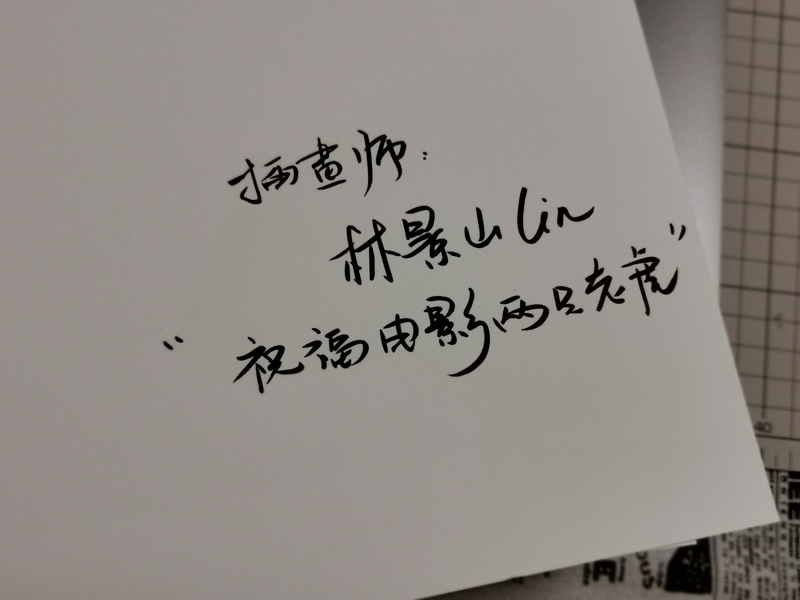 插画师:
林景山 Lin
"祝福电影两只老虎"
40